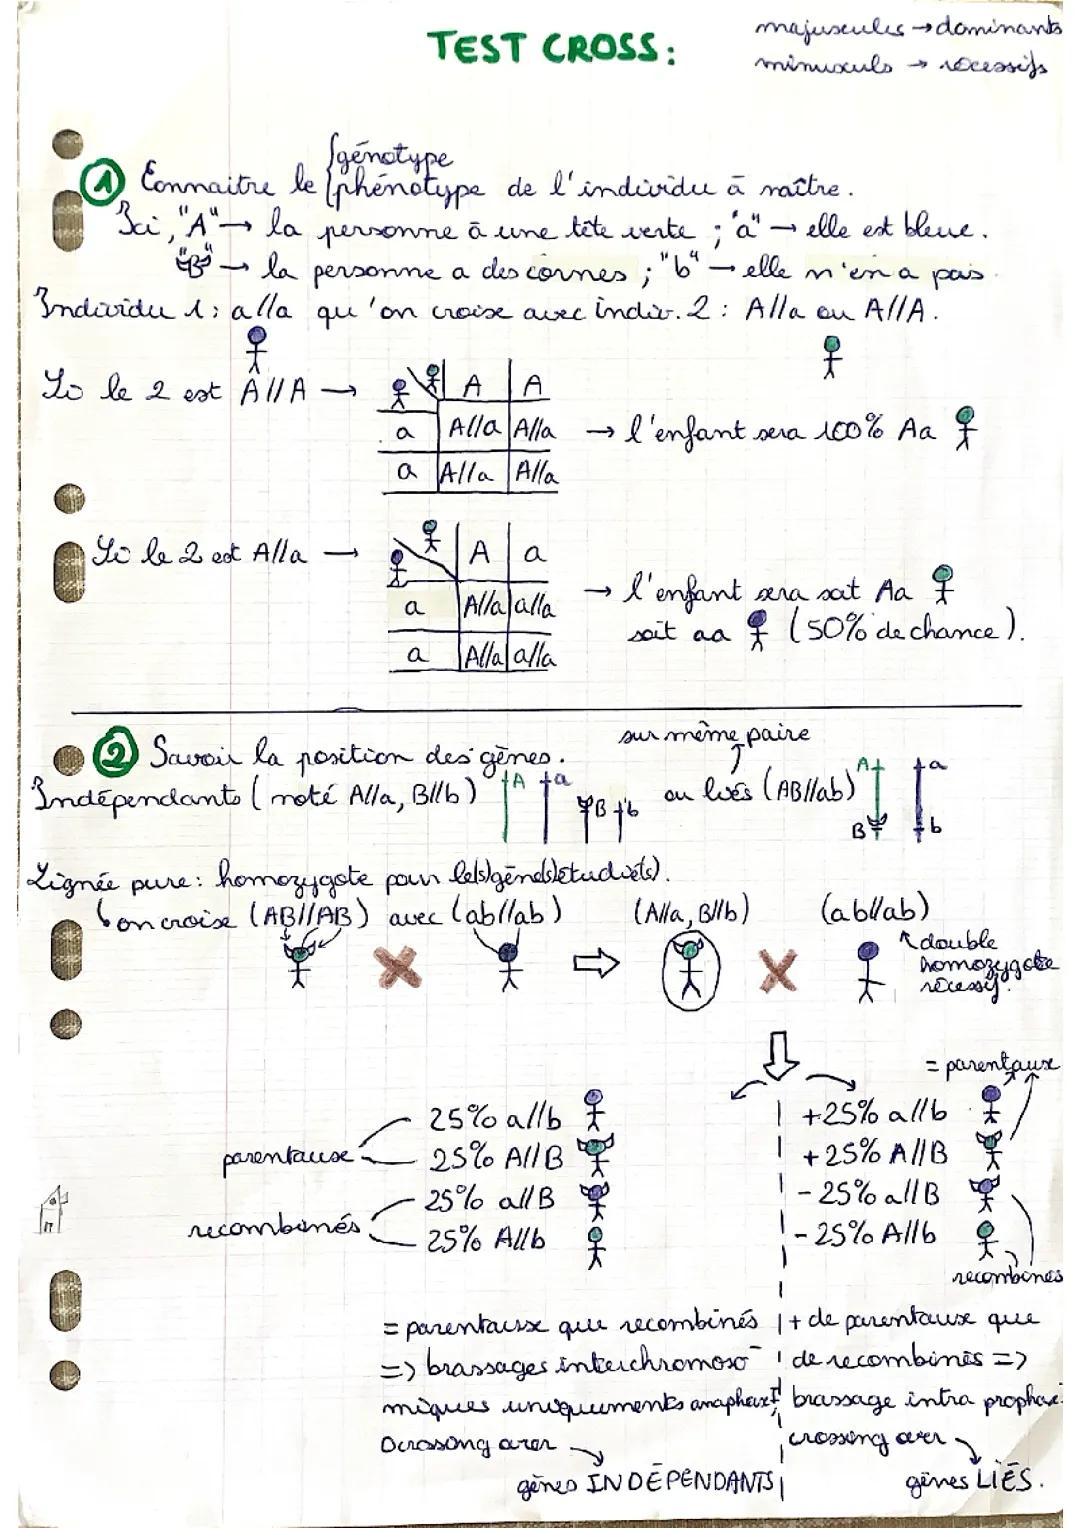 TEST CROSS:
majuscules → dominants
minuscules → récessifs
① Connaitre le {génotype
phénotype de l'individu à naître.
Ici, "A" → la personne à une tête verte ; "a" → elle est bleue.
"B" → la personne a des cornes ; "b" → elle n'en a pas.
Individu 1 : a//a qu'on croise avec indiv. 2 : A//a ou A//A.
Si le 2 est A//A →
A A
a A//a A//a
a A//a A//a
→ l'enfant sera 100% Aa
Si le 2 est A//a →
A a
a A//a a//a
a A//a a//a
→ l'enfant sera soit Aa
soit aa (50% de chance).
② Savoir la position des gènes.
sur même paire
Indépendants (noté A//a, B//b) A a B b ou liés (AB//ab) A a
B b
Lignée pure : homozygote pour le(s) gène(s) étudié(s).
on croise (AB//AB) avec (ab//ab) (A//a, B//b) (ab//ab)
double
homozygote
récessif.
= parentaux
parentaux
25% a//b
25% A//B
recombinés
25% a//B
25% A//b
+25% a//b
+25% A//B
-25% a//B
-25% A//b
recombinés
= parentaux que recombinés
=> brassages interchromoso
miques uniquements anaphase I
0 crossing over
gènes INDÉPENDANTS
+ de parentaux que
de recombinés =>
brassage intra prophase
crossing over
gènes LIÉS.